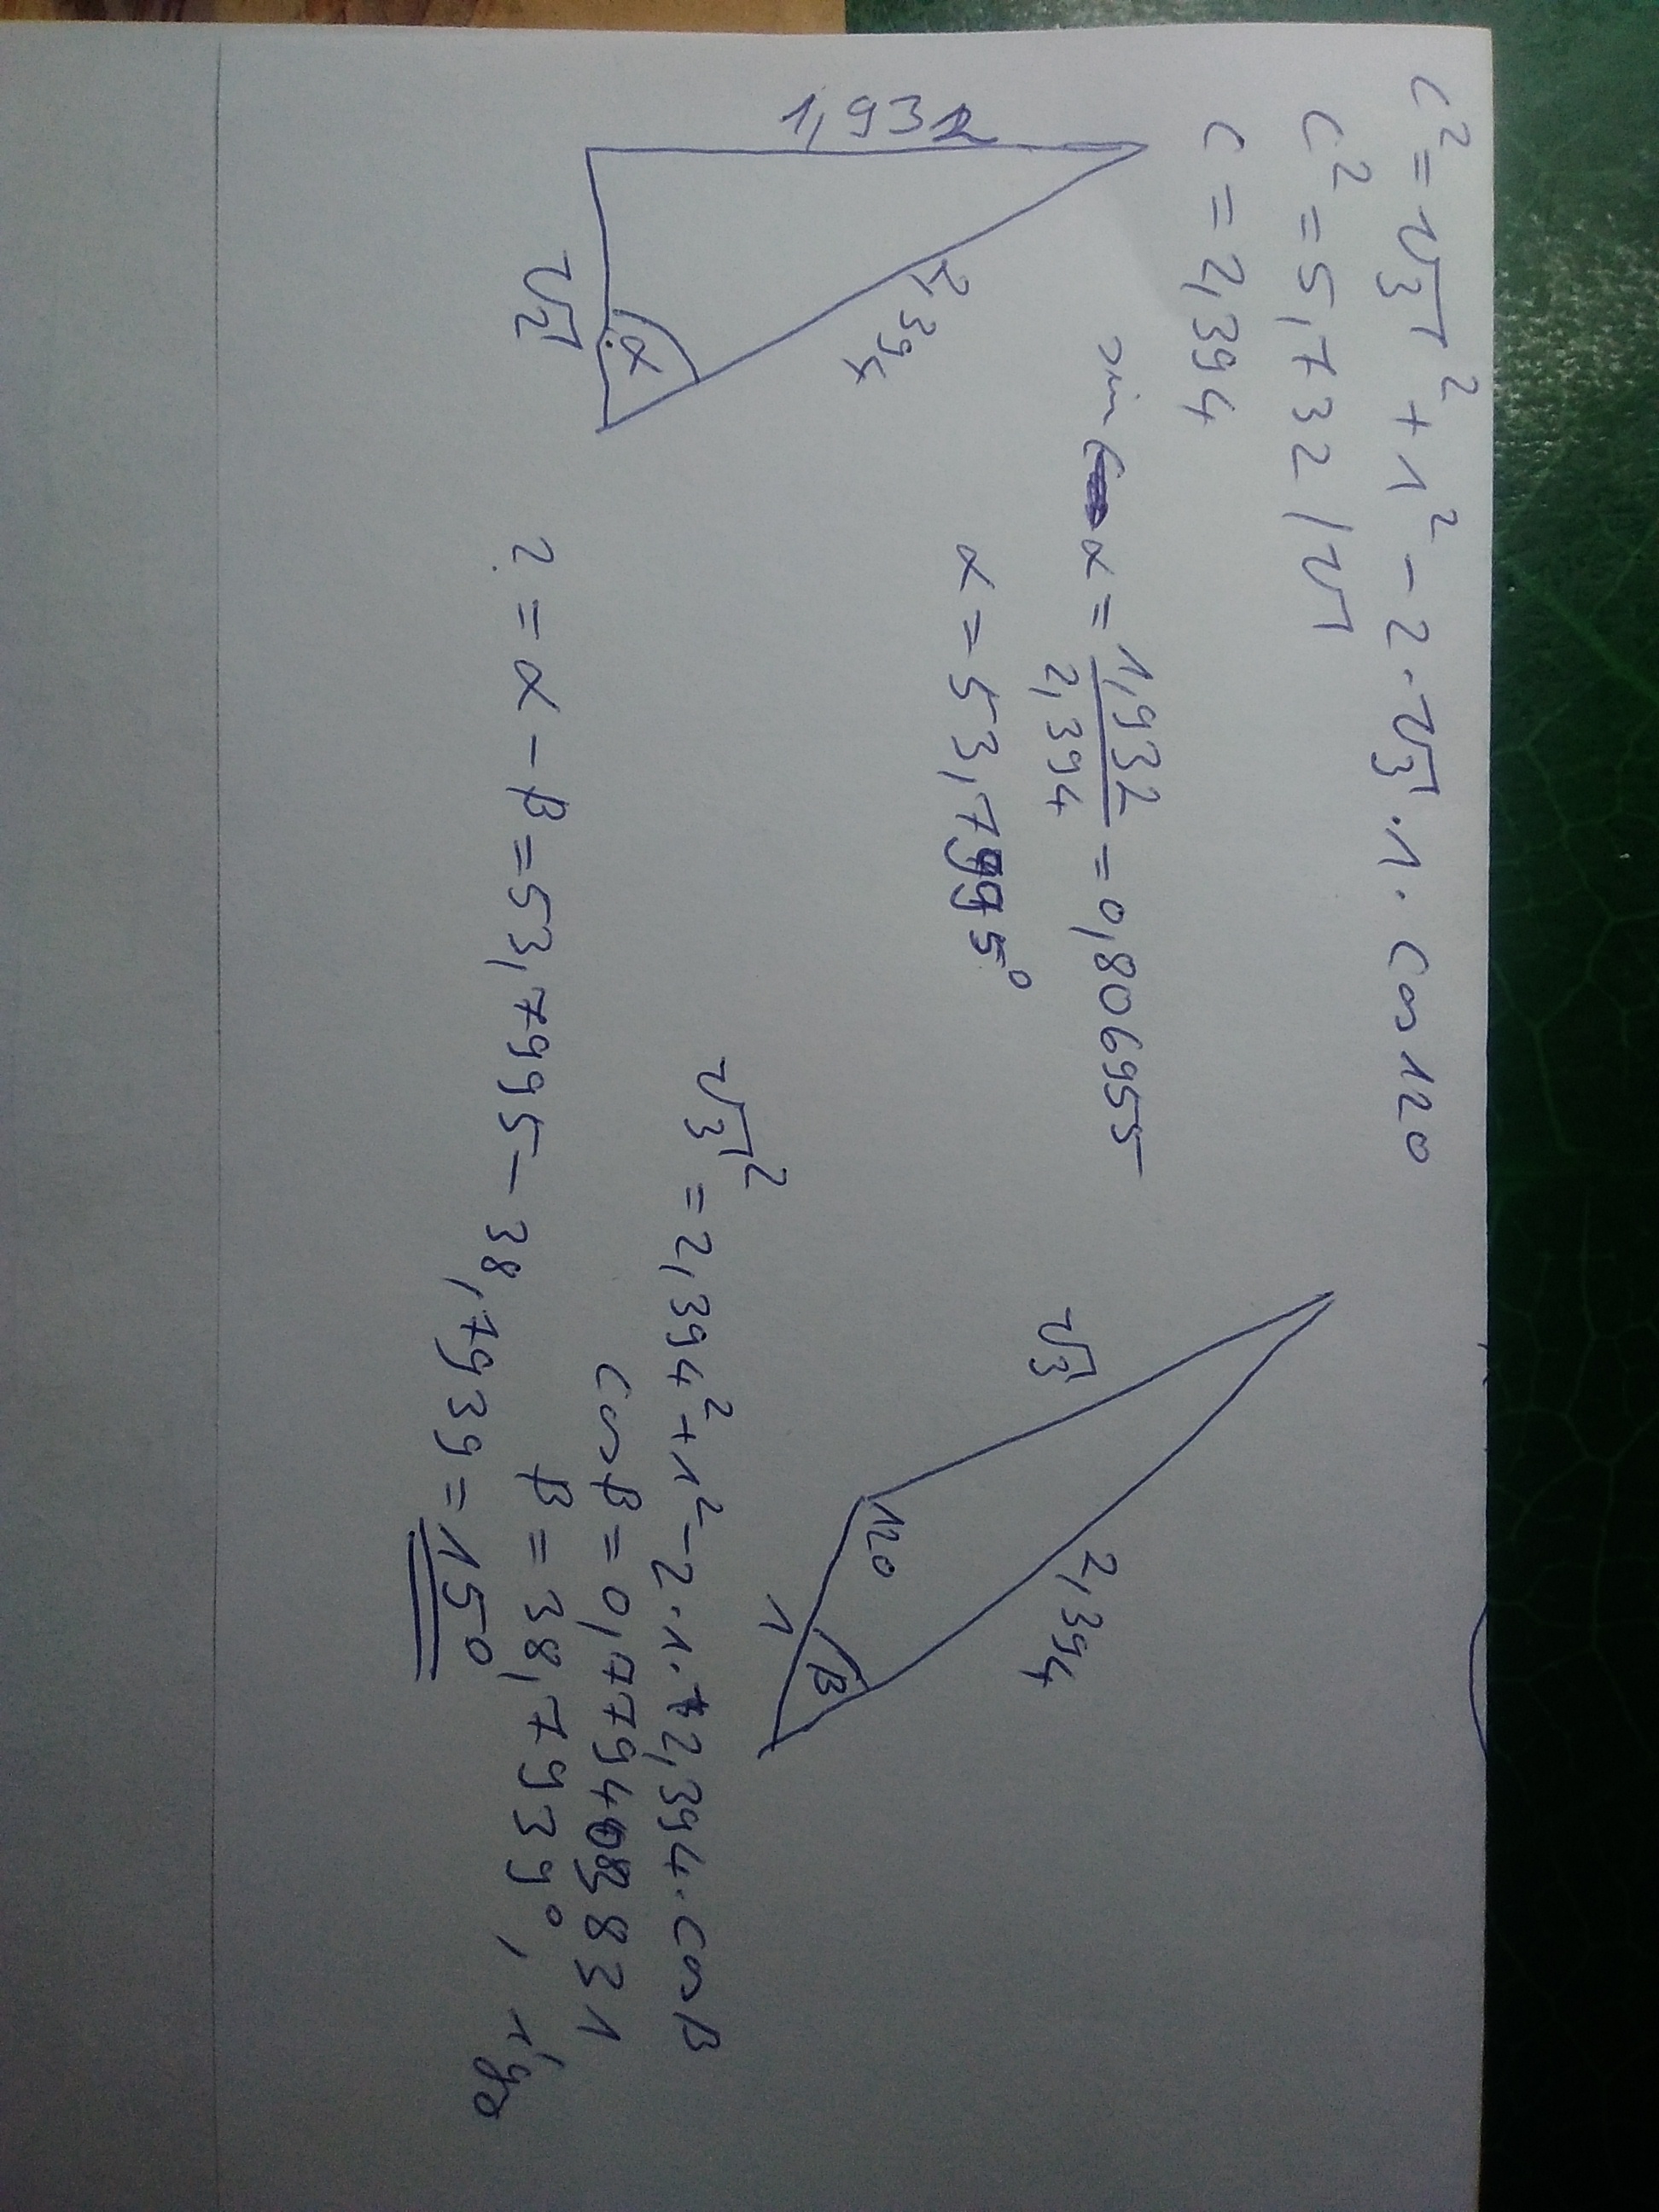 c² = √3² + 1² - 2·√3·1·cos120
c² = 5,732 /√
c = 2,394
1,932
2,394
√2
α
sin α = 1,932/2,394 = 0,806955
α = 53,7995°
√3
120
2,394
1
β
√3² = 2,394² + 1² - 2·1·2,394·cosβ
cosβ = 0,779408831
β = 38,7939°, így
? = α - β = 53,7995 - 38,7939 = 15°